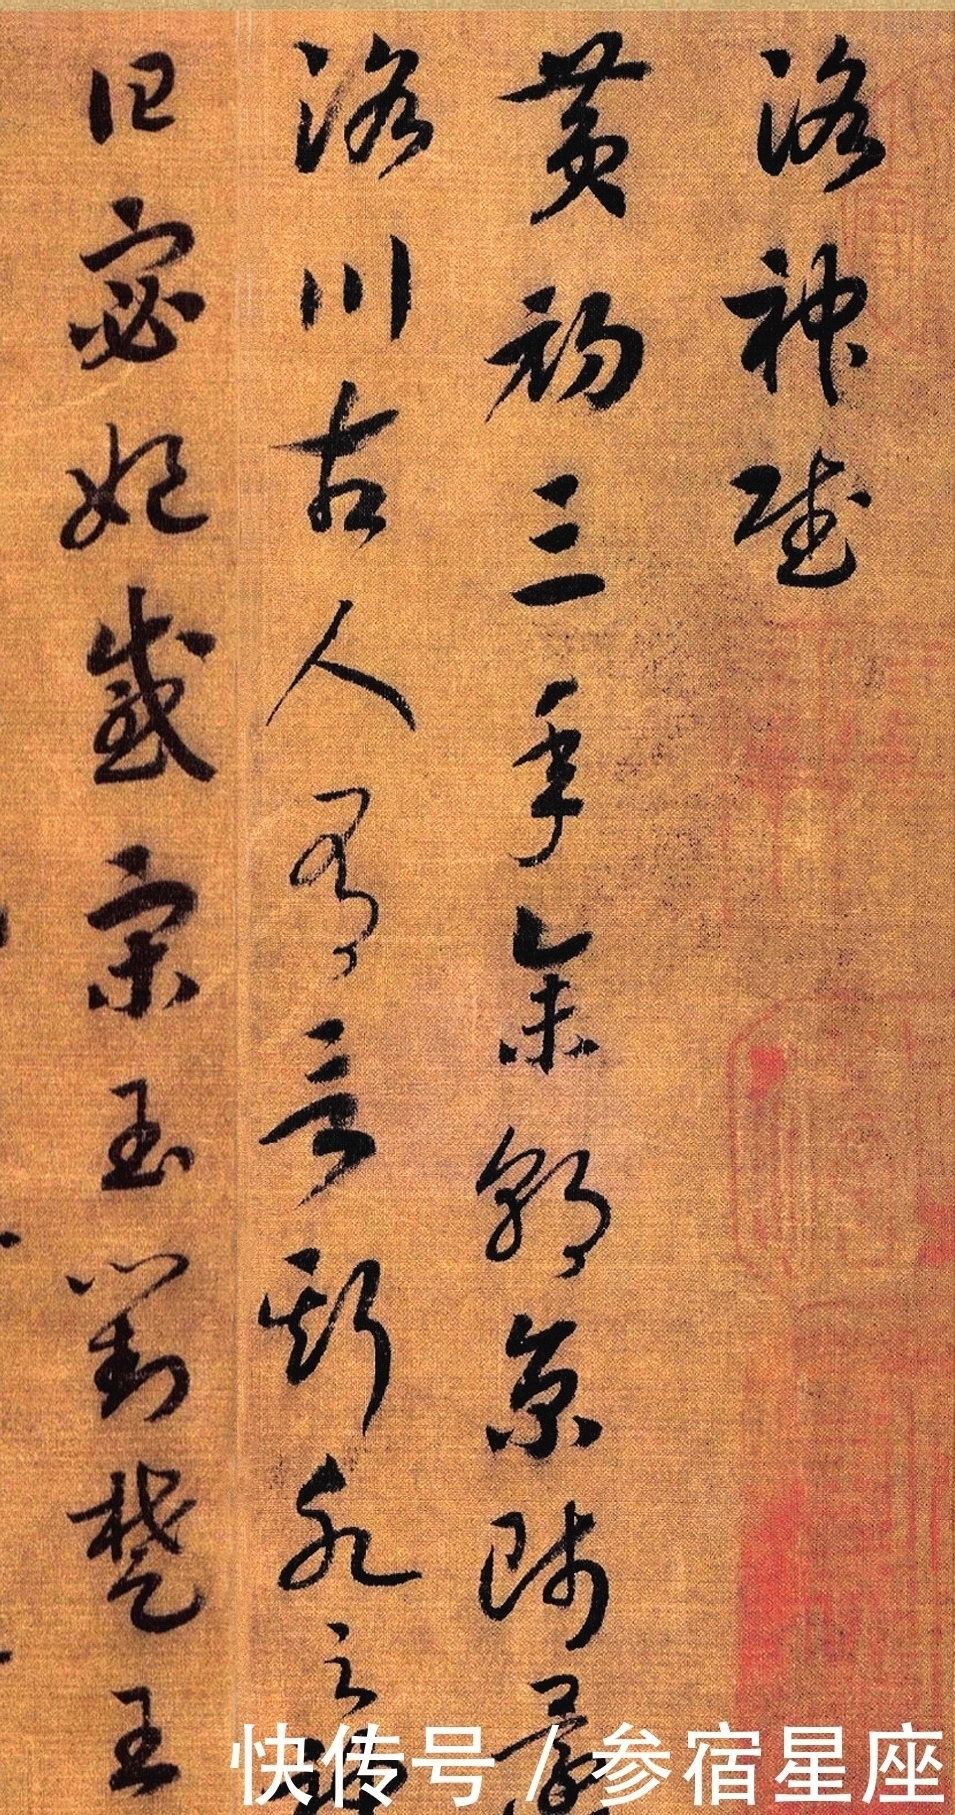 洛神賦
黄初三年余朝京師
洛川古人有言斯水之
曰宓妃感宋玉對楚王
快传号 / 参宿星座